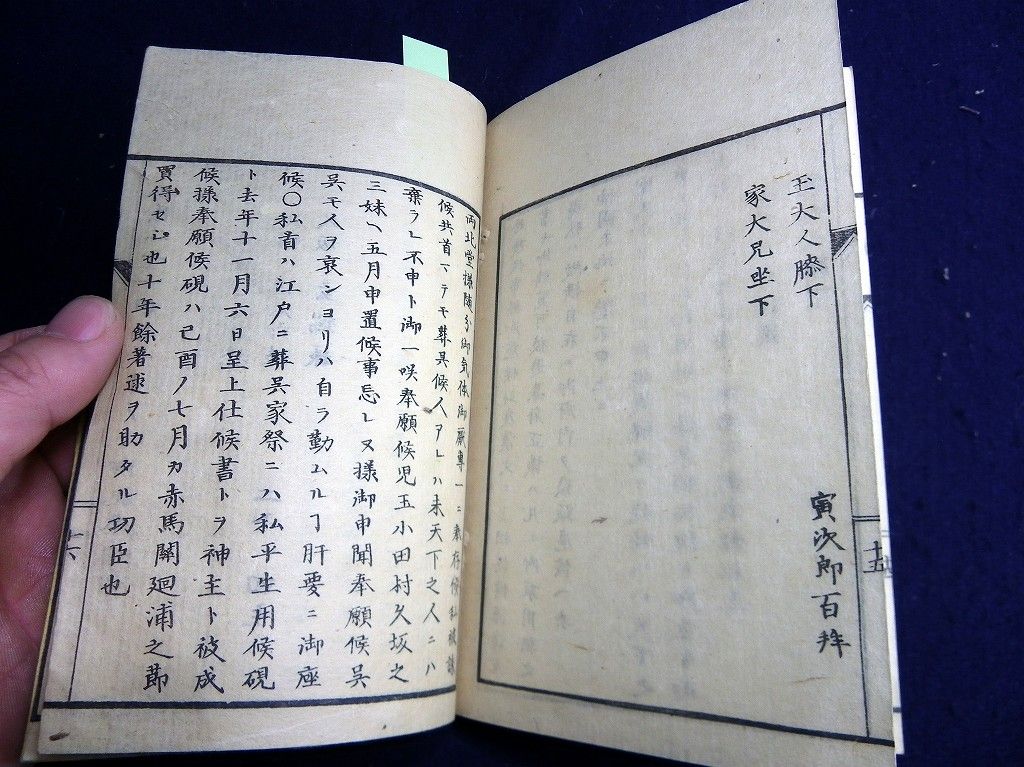 寅次郎百拜
玉大人膝下
家大兄坐下
十五
両北堂様随分御気体御厭専一ニ奉存候私被誅
候共首マテモ葬具候人アレハ未天下之人ニハ
棄ラレ不申ト御一咲奉願候児玉小田村久坂之
三妹ヘ五月申置候事忘レヌ様御申聞奉願候呉
呉モ人ヲ哀シヨリハ自ラ勤ムルヿ肝要ニ御座
候〇私首ハ江戸ニ葬呉家祭ニハ私平生用候硯
ト去年十一月六日呈上仕候書トヲ神主ト被成
候様奉願候硯ハ己酉ノ七月カ赤馬關廻浦之節
買得セシ也十年餘著述ヲ助タル功臣也
十六